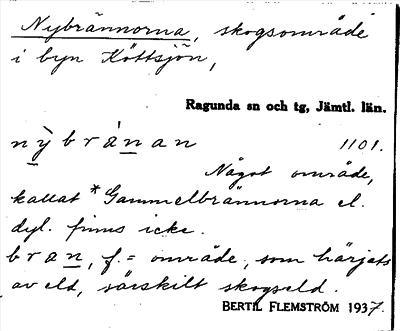 Nybrännorna, skogsområde
i byn Köttsjön,
Ragunda sn och tg, Jämtl. län.
nỳbrànan 1101.
Något område,
kallat *Gammelbrännorna el.
dyl. finns icke.
bran, f. = område, som härjats
av eld, särskilt skogseld.
BERTIL FLEMSTRÖM 1937.